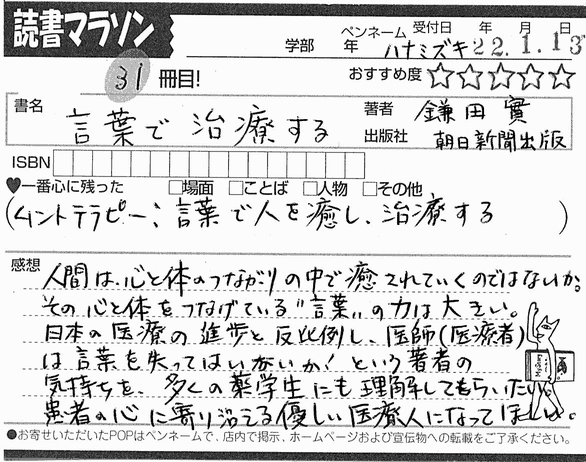 読書マラソン
学部 年 ペンネーム ハナミズキ 受付日 年 月 日 22.1.13
31 冊目!
おすすめ度 ☆☆☆☆☆
書名 言葉で治療する
著者 鎌田實
出版社 朝日新聞出版
ISBN
♥一番心に残った □場面 □ことば □人物 □その他
(ムントテラピー:言葉で人を癒し、治療する)
感想
人間は、心と体のつながりの中で癒されていくのではないか。
その心と体をつなげている"言葉"の力は大きい。
日本の医療の進歩と反比例し、医師(医療者)
は言葉を失ってはいないか!という著者の
気持ちを、多くの薬学生にも理解してもらいたい。
患者の心に寄り沿える優しい医療人になってほしい。
●お寄せいただいたPOPはペンネームで、店内で掲示、ホームページおよび宣伝物への転載をご了承ください。